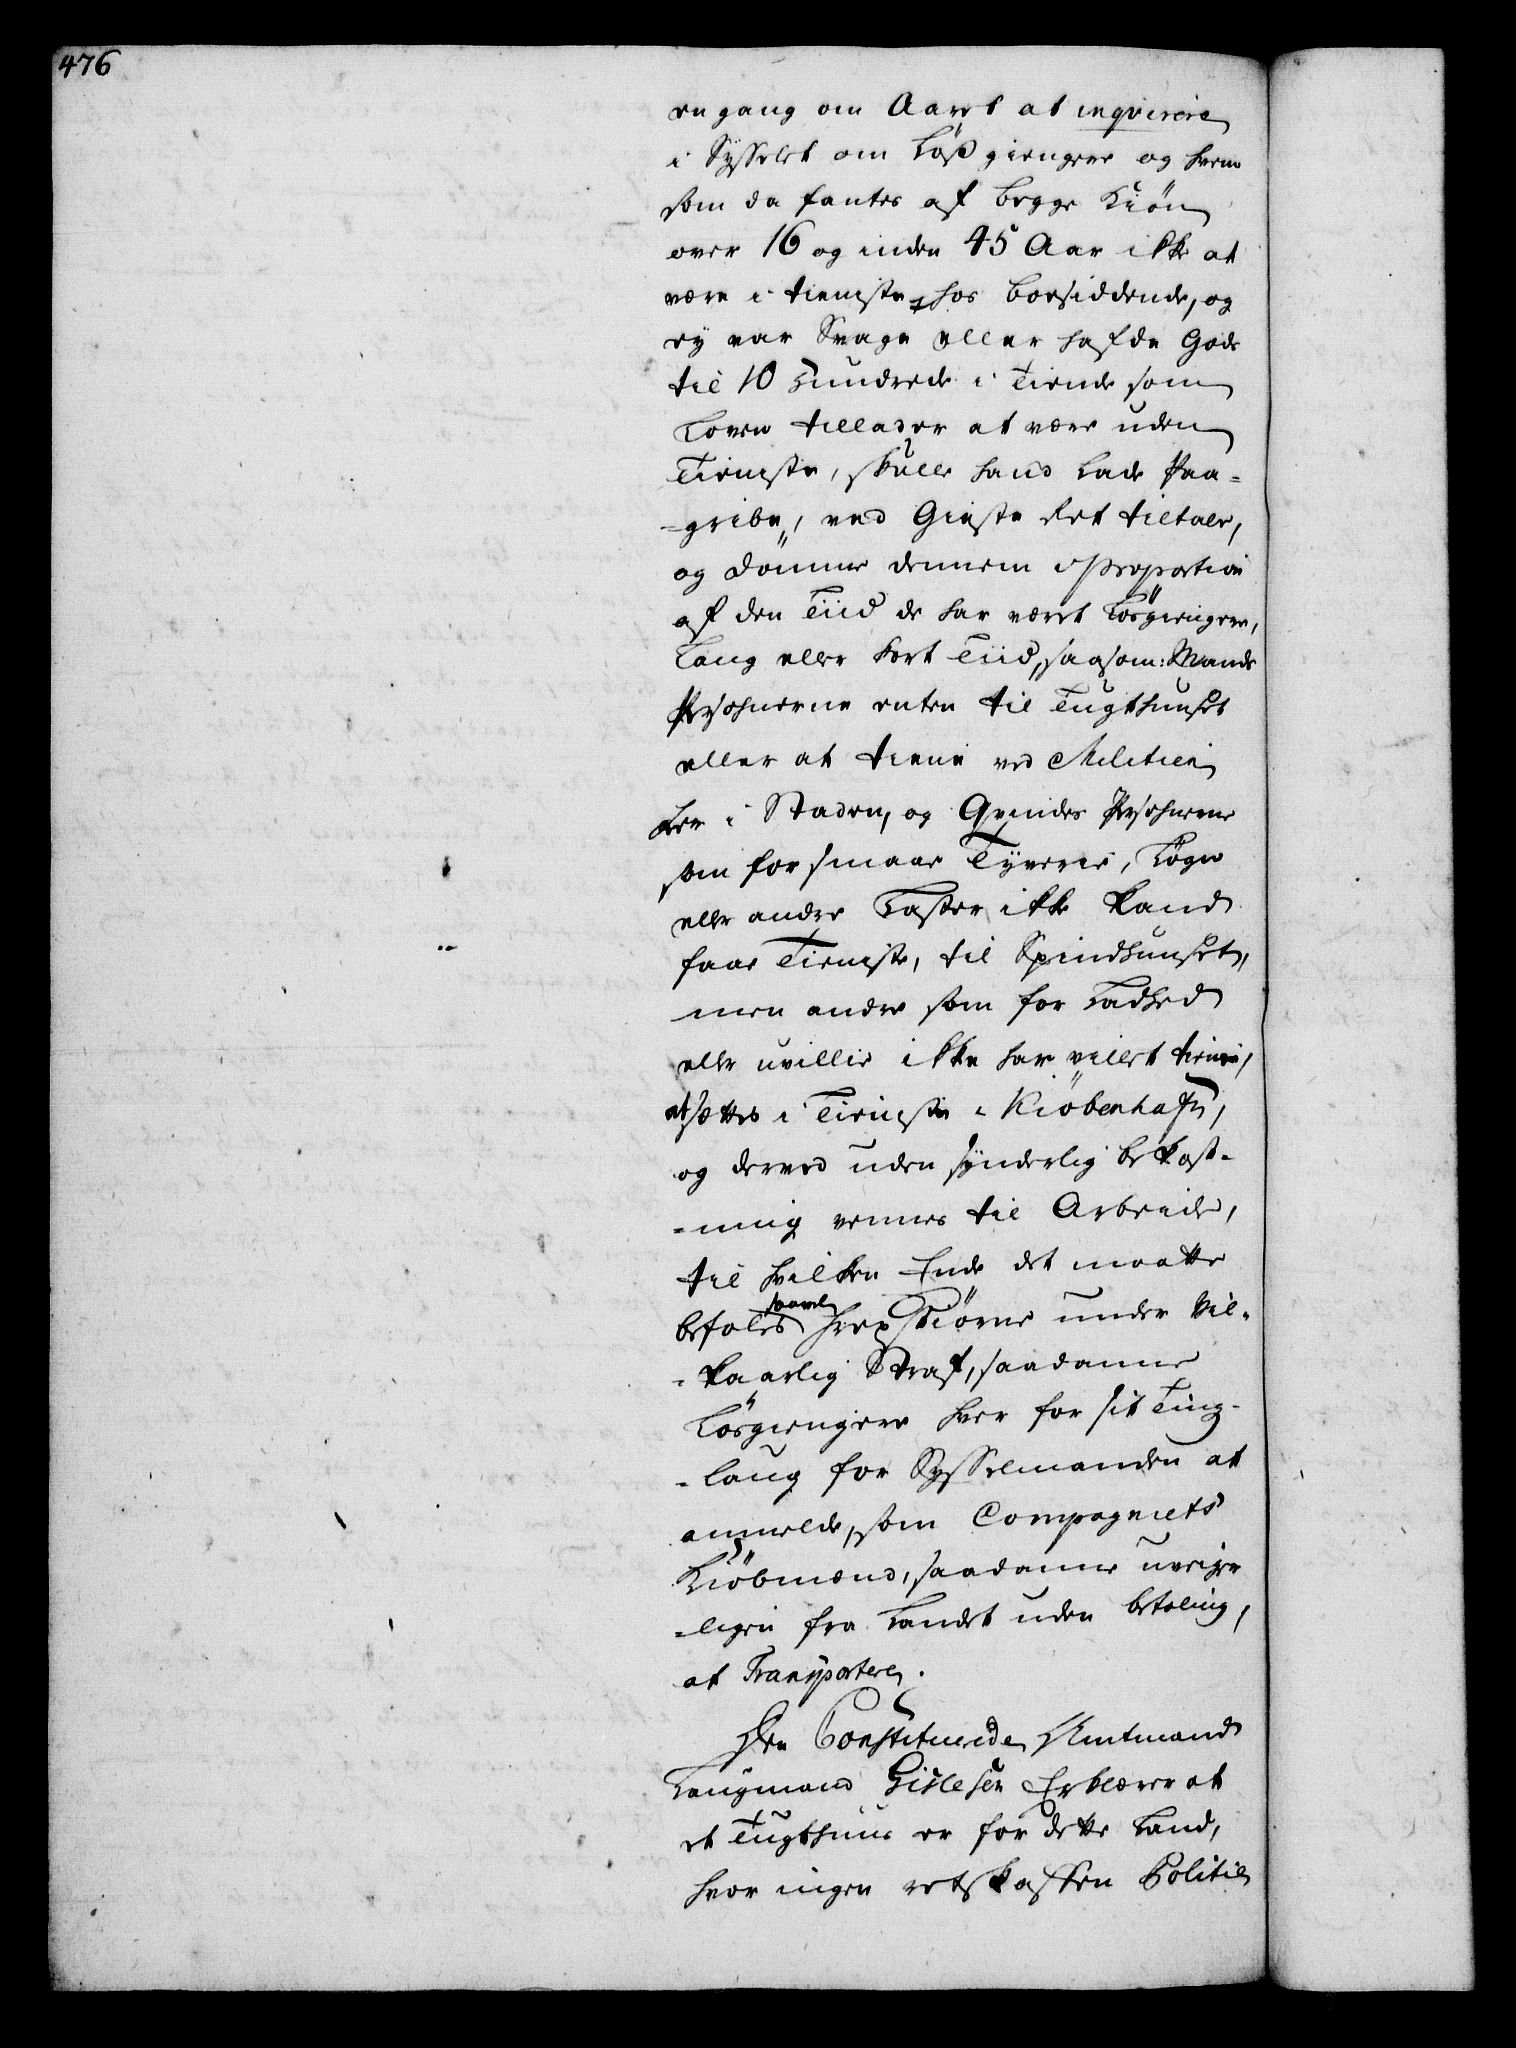 476
en gang om Aaret at inqvirere
i Sysselet om Løsgiengere og hvem
som da fantes af begge Kiön
over 16 og inden 45 Aar ikke at
være i tieniste hos boesiddende, og
ey var Svage eller hafde Gods
til 10 Hundrede i Tiende som
Loven tillader at være uden
Tieniste, skulle hand lade Paa=
=gribe, ved Gieste Ret tiltale,
og dömme dennem i Proportion
af den Tiid de har været Lösgiengere,
Lang eller kort Tiid, saasom: Mands
Persohnerne enten til Tugthuuset
eller at tiene ved Militien
her i Staden, og Qvindes Persohnerne
som for smaae Tyverie, Løgn
eller andre Laster ikke kand
faae Tieniste, til Spindhuuset,
men andre som for Ladhed
eller uvillie ikke har villet tiene,
at sættes i Tieniste i Kiöbenhafn,
og derved uden synderlig bekost-
-ning vennes til Arbeide,
til hvilken Ende det maatte
befales saavel Hrepstiørne under vil-
-kaarlig Straf, saadanne
Lösgiengere hver for sit Ting-
-laug for Sysselmanden at
anmelde, som Compagniets
Kiöbmænd, saadanne uveiger
-ligen fra Landet uden betaling,
at Transportere.
Den Constituerede Amtmand
Laugmand Gislesen Erklærer at
et Tugthuus er for dette Land,
hvor ingen retskaffen Politie